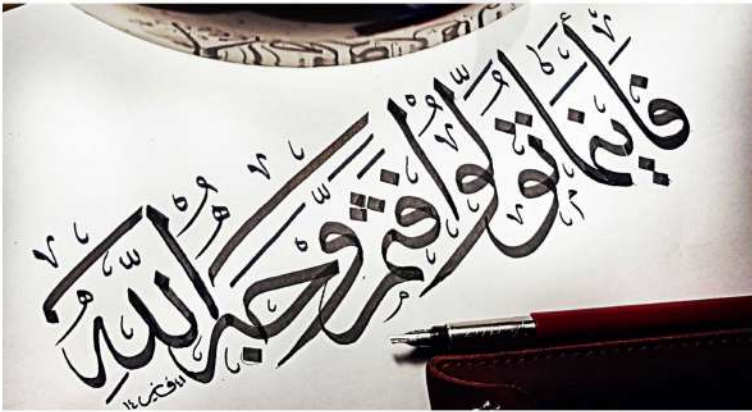 فَأَيْنَمَا تُوَلُّوا فَثَمَّ وَجْهُ اللَّهِ